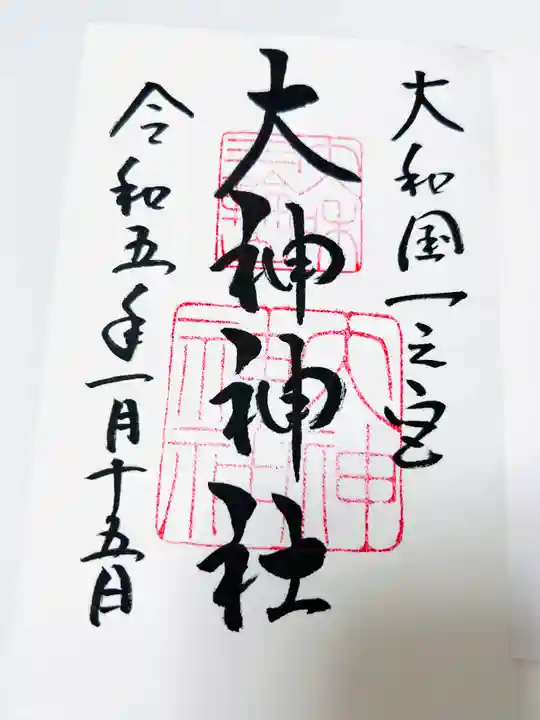 大和国一之宮
大神神社
令和五年一月十五日
大神神社